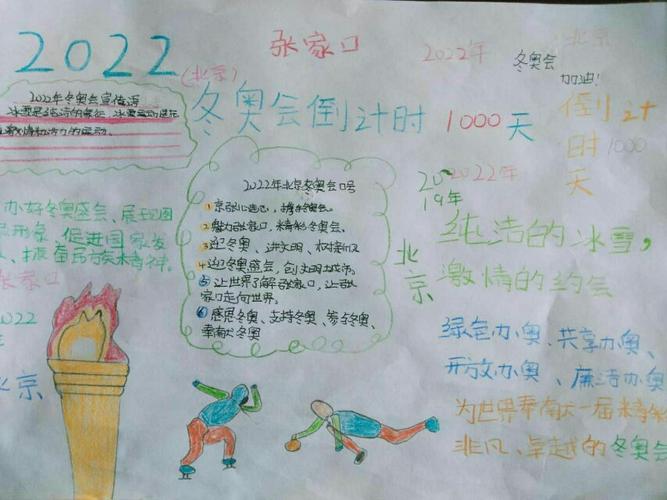 2022
(北京)
张家口
2022年
北京
冬奥会
加油!
冬奥会倒计时 1000天
倒计
时1000
天
2022年冬奥会宣传语
冰雪是纯洁的象征，冰雪运动是充
激情和活力的运动。
2022年北京冬奥会口号
①京张心连心，携手冬奥会。
②魅力张家口，精彩冬奥会。
③迎冬奥、讲文明、树
④迎冬奥盛会，创文明城市。
⑤让世界了解张家口，让张
家口走向世界。
⑥感恩冬奥、支持冬奥、参与冬奥、
奉献冬奥
办好冬奥盛会、展现国
形象，促进国家发
、振奋民族精神。
张家口
2022
北京
2019年
2022年
北京
纯洁的冰雪，
激情的约会
绿色办奥、共享办奥、
开放办奥、廉洁办奥
为世界奉献一届精彩
非凡、卓越的冬奥会